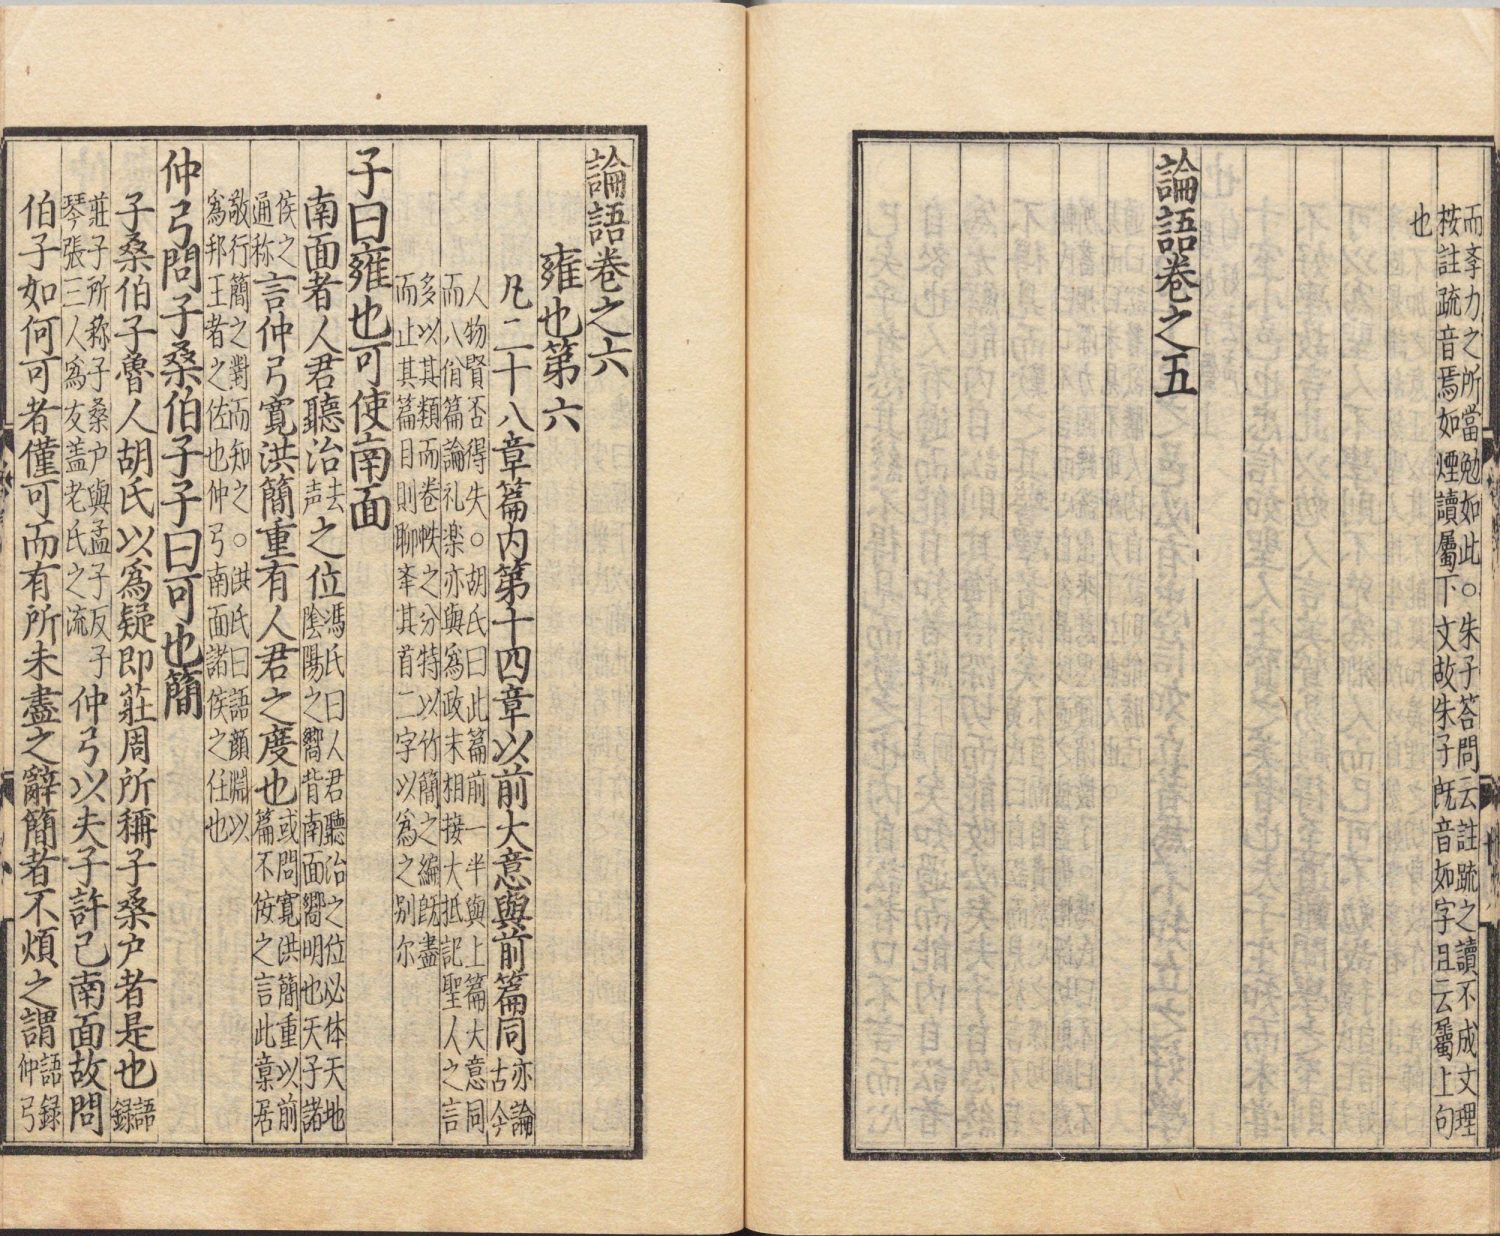 而孝力之所當勉如此○朱子荅問云註疏之讀不成文理
桉註疏音焉如煙讀屬下文故朱子既音如字且云屬上句
也
論語卷之五
論語卷之六
雍也第六
凡二十八章篇内第十四章以前大意與前篇同
亦論
古今
人物賢否得失○胡氏曰此篇前一半與上篇大意同
而八佾篇論礼楽亦與為政末相接大抵記聖人之言
多以其類而卷帙之分特以竹簡之編既盡
而止其篇目則聊峯其首二字以為之别尔
子曰雍也可使南面
南面者人君聽治
去
声
之位
馮氏曰人君聽治之位必体天地
陰陽之嚮背南面嚮明也天子諸
侯之
通称
言仲弓寛洪簡重有人君之度也
或問寛洪簡重以前
篇不佞之言此章居
敬行簡之對而知之○洪氏曰語顔淵以
為邦王者之佐也仲弓南面諸侯之任也
仲弓問子桑伯子子曰可也簡
子桑伯子魯人胡氏以為疑即莊周所稱子桑户者是也
語
録
莊子所称子桑户與孟子反子
琴張三人為友盖老氏之流
仲弓以夫子許己南面故問
伯子如何可者僅可而有所未盡之辭簡者不煩之謂
語録
仲弓